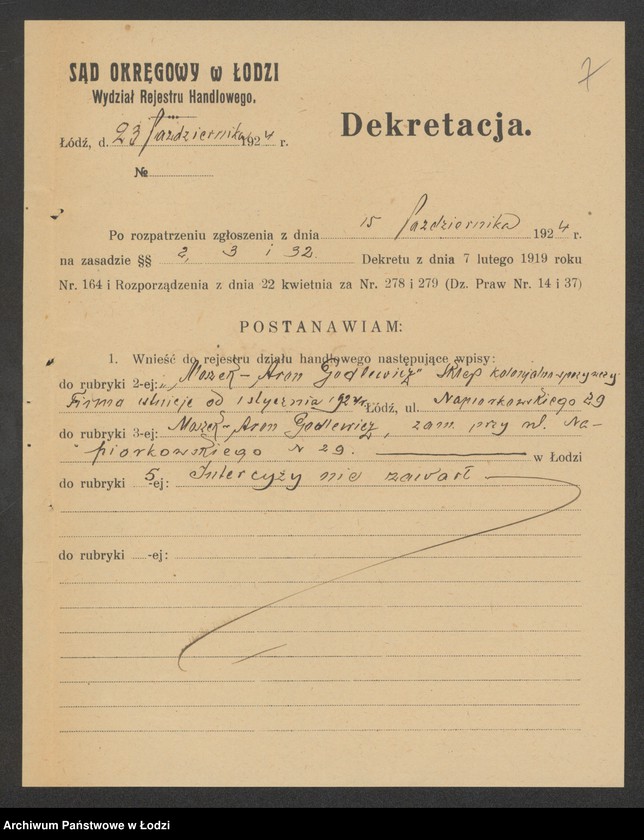 SĄD OKRĘGOWY w ŁODZI
Wydział Rejestru Handlowego.
7
Łódź, d. 23 Października 1924 r.
Dekretacja.
№
Po rozpatrzeniu zgłoszenia z dnia 15 Października 1924 r.
na zasadzie §§ 2, 3 i 32 Dekretu z dnia 7 lutego 1919 roku
Nr. 164 i Rozporządzenia z dnia 22 kwietnia za Nr. 278 i 279 (Dz. Praw Nr. 14 i 37)
POSTANAWIAM:
1. Wnieść do rejestru działu handlowego następujące wpisy:
do rubryki 2-ej: „Moszek-Aron Godlewicz" Sklep kolonjalno-spożywczy
Firma istnieje od 1 stycznia 1924 r. Łódź, ul. Napiorkowskiego 29
do rubryki 3-ej: Moszek-Aron Godlewicz, zam. przy ul. Na-
piorkowskiego N 29. w Łodzi
do rubryki 5-ej: Intercyzy nie zawarł
do rubryki -ej:
Archiwum Państwowe w Łodzi